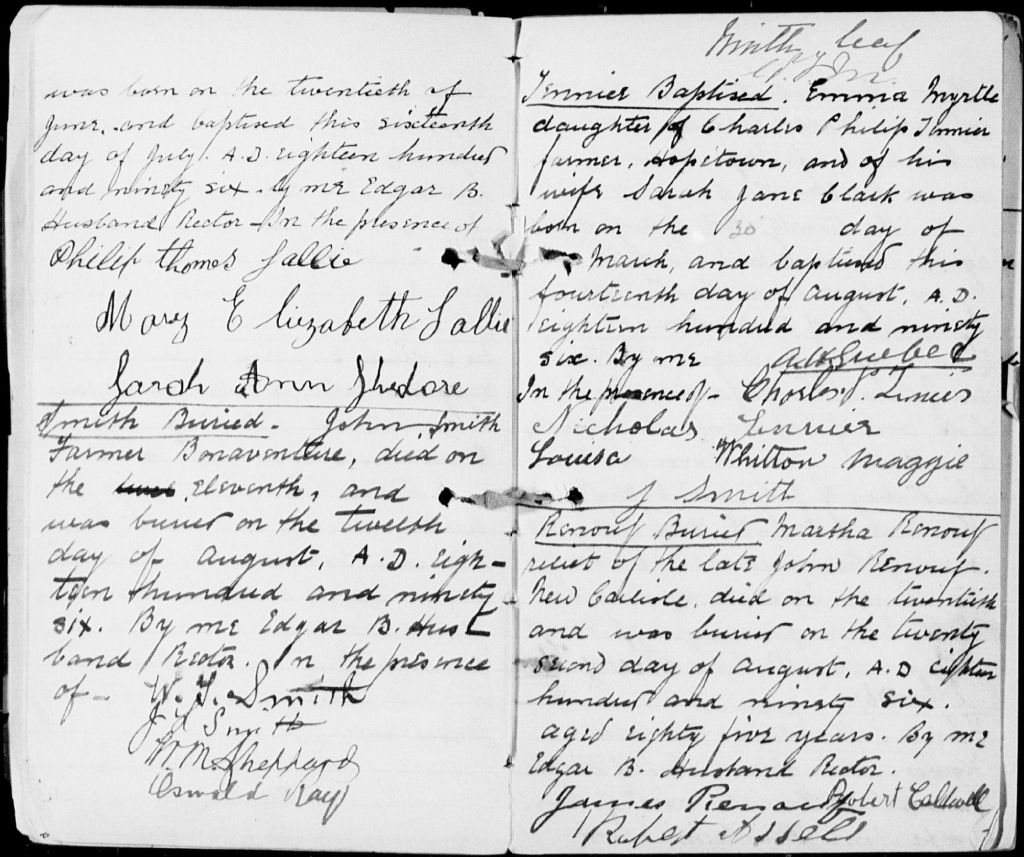 was born on the twentieth of
June, and baptised this sixteenth
day of July. A.D. eighteen hundred
and ninety six. by me Edgar B.
Husband Rector. In the presence of
Philip Thomas Sallie
Mary Elizabeth Sallie
Sarah Ann
Smith Buried. John Smith
Farmer Bonaventure, died on
the Eleventh, and
was buried on the twelfth
day of August, A.D. Eigh-
teen hundred and ninety
six. By me Edgar B. Hus
band Rector. In the presence
of - W. G. Smith
Smith
W. M. Sheppard
Oswald Kay
Ninth leaf
Tennier Baptised. Emma Myrtle
daughter of Charles Philip Tennier
farmer, Hopetown, and of his
wife Sarah Jane Clark was
born on the 30 day of
March, and baptised this
fourteenth day of August, A.D.
eighteen hundred and ninety
six. By me
In the presence of - Charles
Nicholas Tennier
Louisa Whitton Maggie
J Smith
Renouf Buried Martha Renouf
relict of the late John Renouf.
New Carlisle, died on the twentieth
and was buried on the twenty
second day of August, A.D eighteen
hundred and ninety six.
aged eighty five years. By me
Edgar B. Husband Rector.
James Renouf Robert Caldwell
Robert Assels